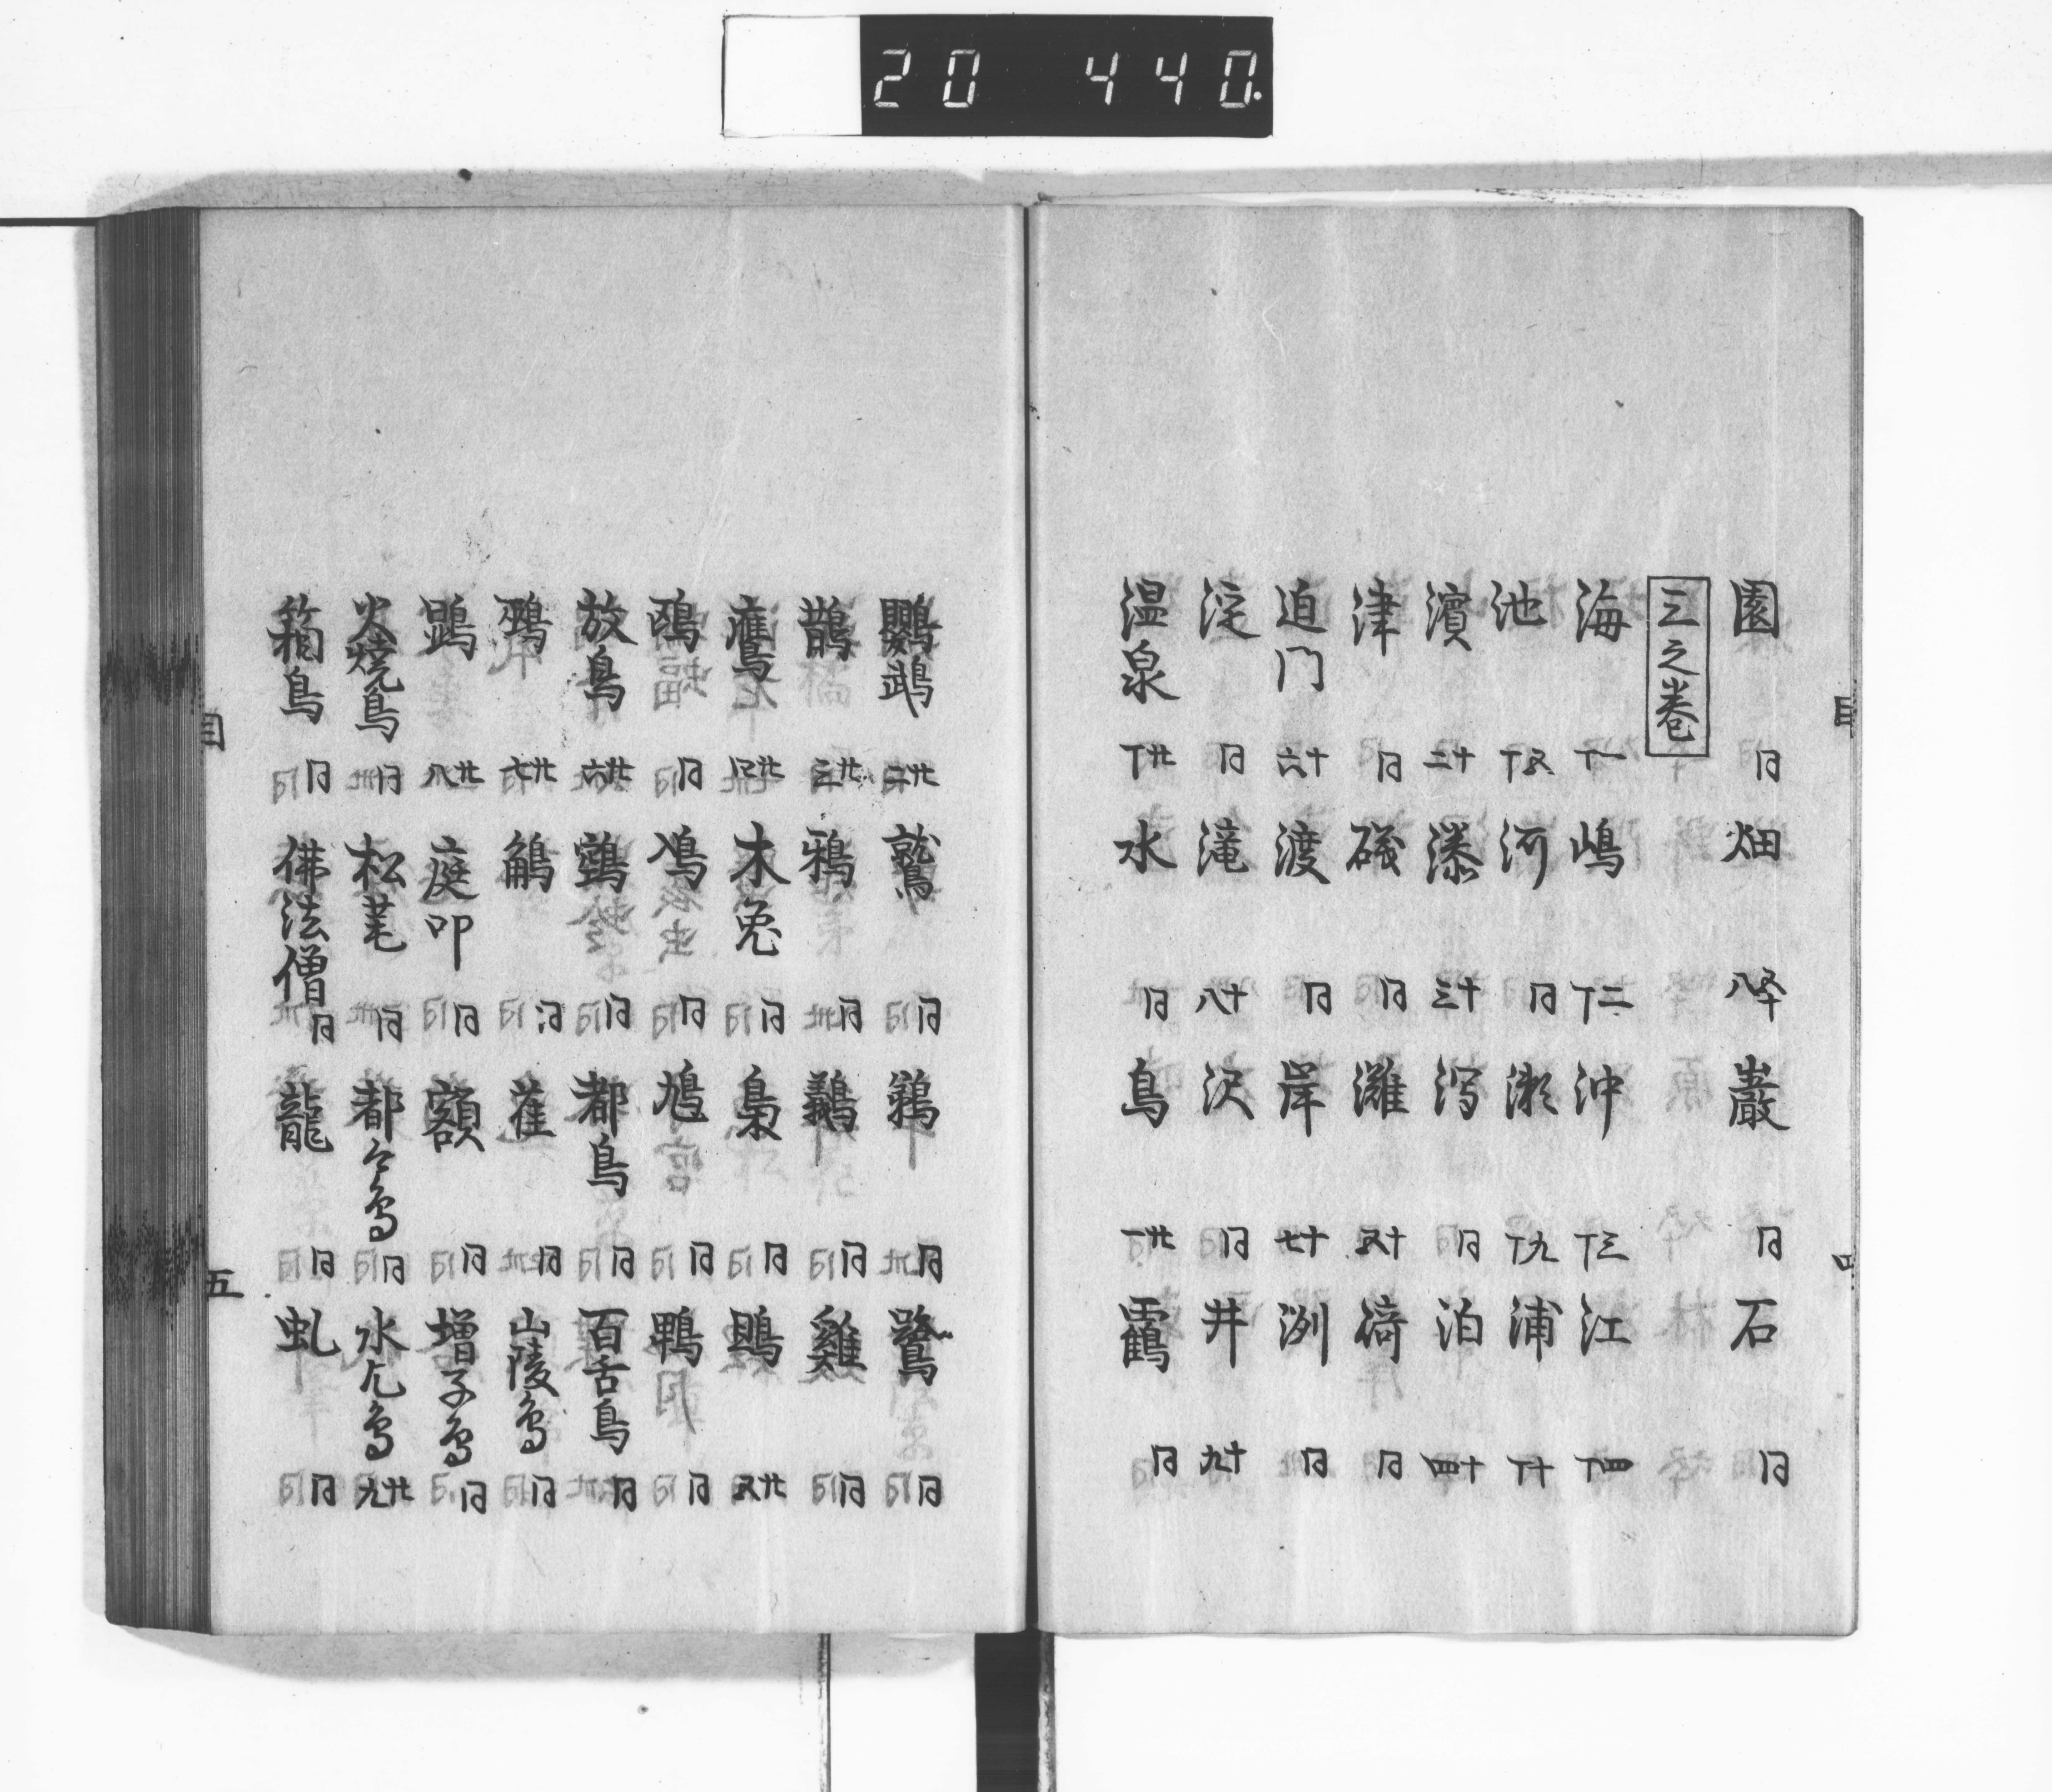 20 440.
園 同 畑 巌 同 石 同
三之巻
海 一丁 嶋 二丁 沖 三丁 江 四丁
池 五丁 河 同 瀬 九丁 浦 十丁
濱 十二 十三 泻 同 泊 十四
津 同 磯 同 灘 十五 同
迫门 十六 渡 同 岸 十七 洲 同
淀 同 滝 十八 沢 同 井 十九
温泉 廿丁 水 同 鳥 廿一 同
目
鸚鵡 廿二 鷲 同 同 鷺 同
鵲 廿三 鴉 同 同 雞 同
鷹 廿四 木兎 同 梟 同 廿五
同 同 鳩 同 鴨 同
放鳥 廿六 同 都鳥 同 百舌鳥 同
廿七 同 同 山陵鳥 同
廿八 庭叩 同 額 同 増子鳥 同
火焼鳥 同 松 同 都々鳥 同 水乞鳥 廿九
箱鳥 同 佛法僧 同 龍 同 虬 同
目 五